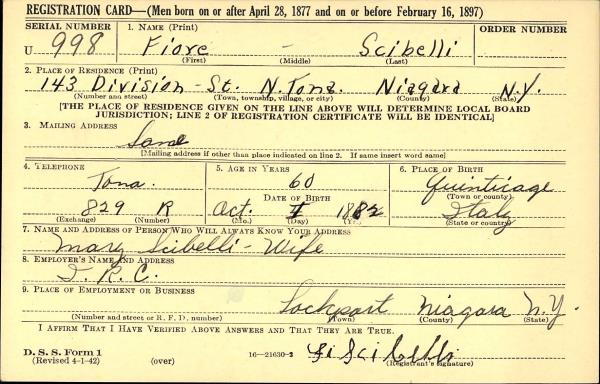 REGISTRATION CARD—(Men born on or after April 28, 1877 and on or before February 16, 1897)
SERIAL NUMBER 1. NAME (Print) ORDER NUMBER
U 998 Fiore - Scibelli
(First) (Middle) (Last)
2. PLACE OF RESIDENCE (Print)
143 Division St. N. Tona. Niagara N.Y.
(Number and street) (Town, township, village, or city) (County) (State)
[THE PLACE OF RESIDENCE GIVEN ON THE LINE ABOVE WILL DETERMINE LOCAL BOARD
JURISDICTION; LINE 2 OF REGISTRATION CERTIFICATE WILL BE IDENTICAL]
3. MAILING ADDRESS
Same
[Mailing address if other than place indicated on line 2. If same insert word same]
4. TELEPHONE 5. AGE IN YEARS 6. PLACE OF BIRTH
Tona. 60
DATE OF BIRTH (Town or county)
829 R Oct. 1882 Italy
(Exchange) (Number) (Mo.) (Day) (Yr.) (State or country)
7. NAME AND ADDRESS OF PERSON WHO WILL ALWAYS KNOW YOUR ADDRESS
Mary Scibelli - Wife
8. EMPLOYER'S NAME AND ADDRESS
I. R. C.
9. PLACE OF EMPLOYMENT OR BUSINESS
Lockport Niagara N.Y.
(Number and street or R. F. D. number) (Town) (County) (State)
I AFFIRM THAT I HAVE VERIFIED ABOVE ANSWERS AND THAT THEY ARE TRUE.
D. S. S. Form 1
(Revised 4-1-42) (over) 16—21630-2 Fi Scibelli
(Registrant's signature)